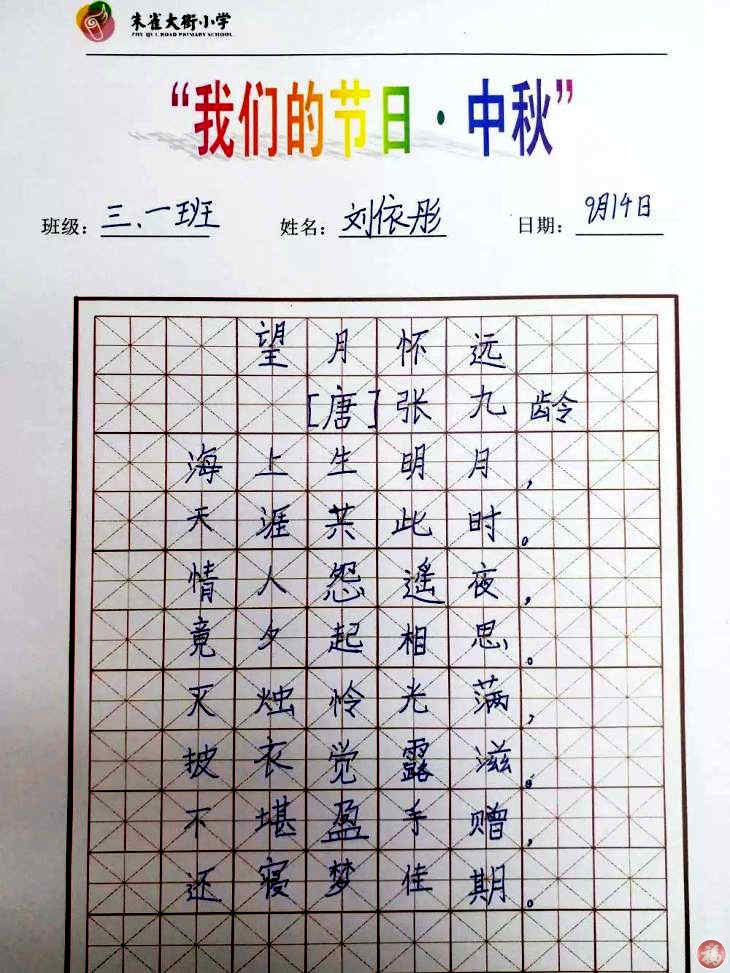 朱雀大街小学
“我们的节日·中秋”
班级：三、一班 姓名：刘依彤 日期：9月14日
望月怀远
[唐]张九龄
海上生明月，
天涯共此时。
情人怨遥夜，
竟夕起相思。
灭烛怜光满，
披衣觉露滋。
不堪盈手赠，
还寝梦佳期。